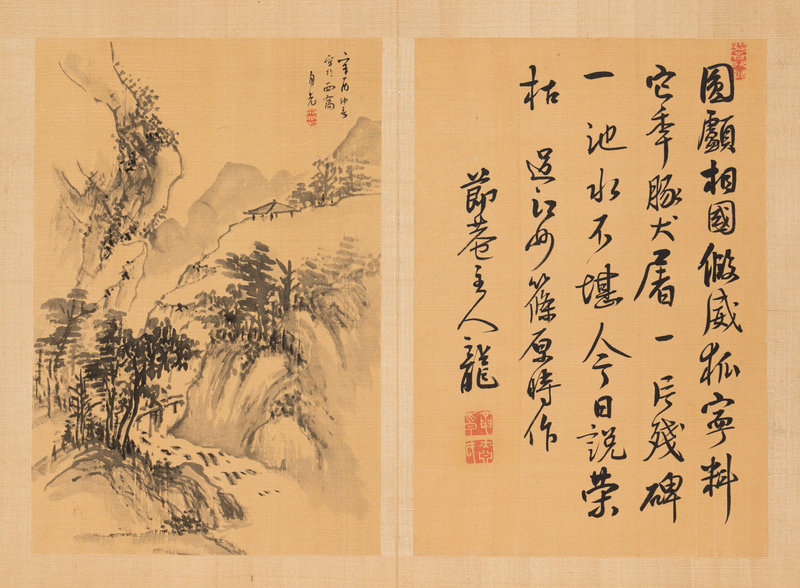 圓顱相國假威狐寧料
它秊豚犬屠一片殘碑
一池水不堪今日說榮
枯 過江州篠原時作
節菴主人龍
辛酉仲春
寫於西窩